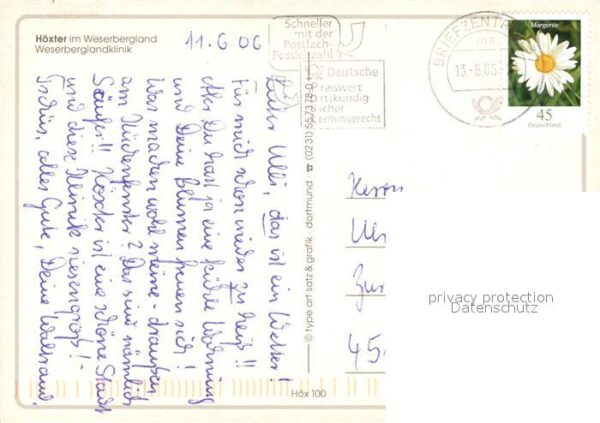 Höxter im Weserbergland
Weserberglandklinik
11.6.06
Lieber Ulli, das ist ein Wetter!
Für mich schon wieder zu heiß!!
Aber Du hast ja eine kühle Wohnung
und Deine Blumen freuen sich!
Was machen wohl meine - draußen
am Küchenfenster? Das sind nämlich
Säufer!! Höxter ist eine schöne Stadt
und diese Klinik riesengroß! -
Tschüs, alles Gute, Deine Waltraud
Schneller
mit der
Postfach-
Deutsche
Preiswert
BRIEFZENTR
13.-6.06
Margerite
45
Deutschland
© type art satz & grafik · dortmund ☎ (0231) 557378-0
Herrn
45
privacy protection
Datenschutz
Höx 100